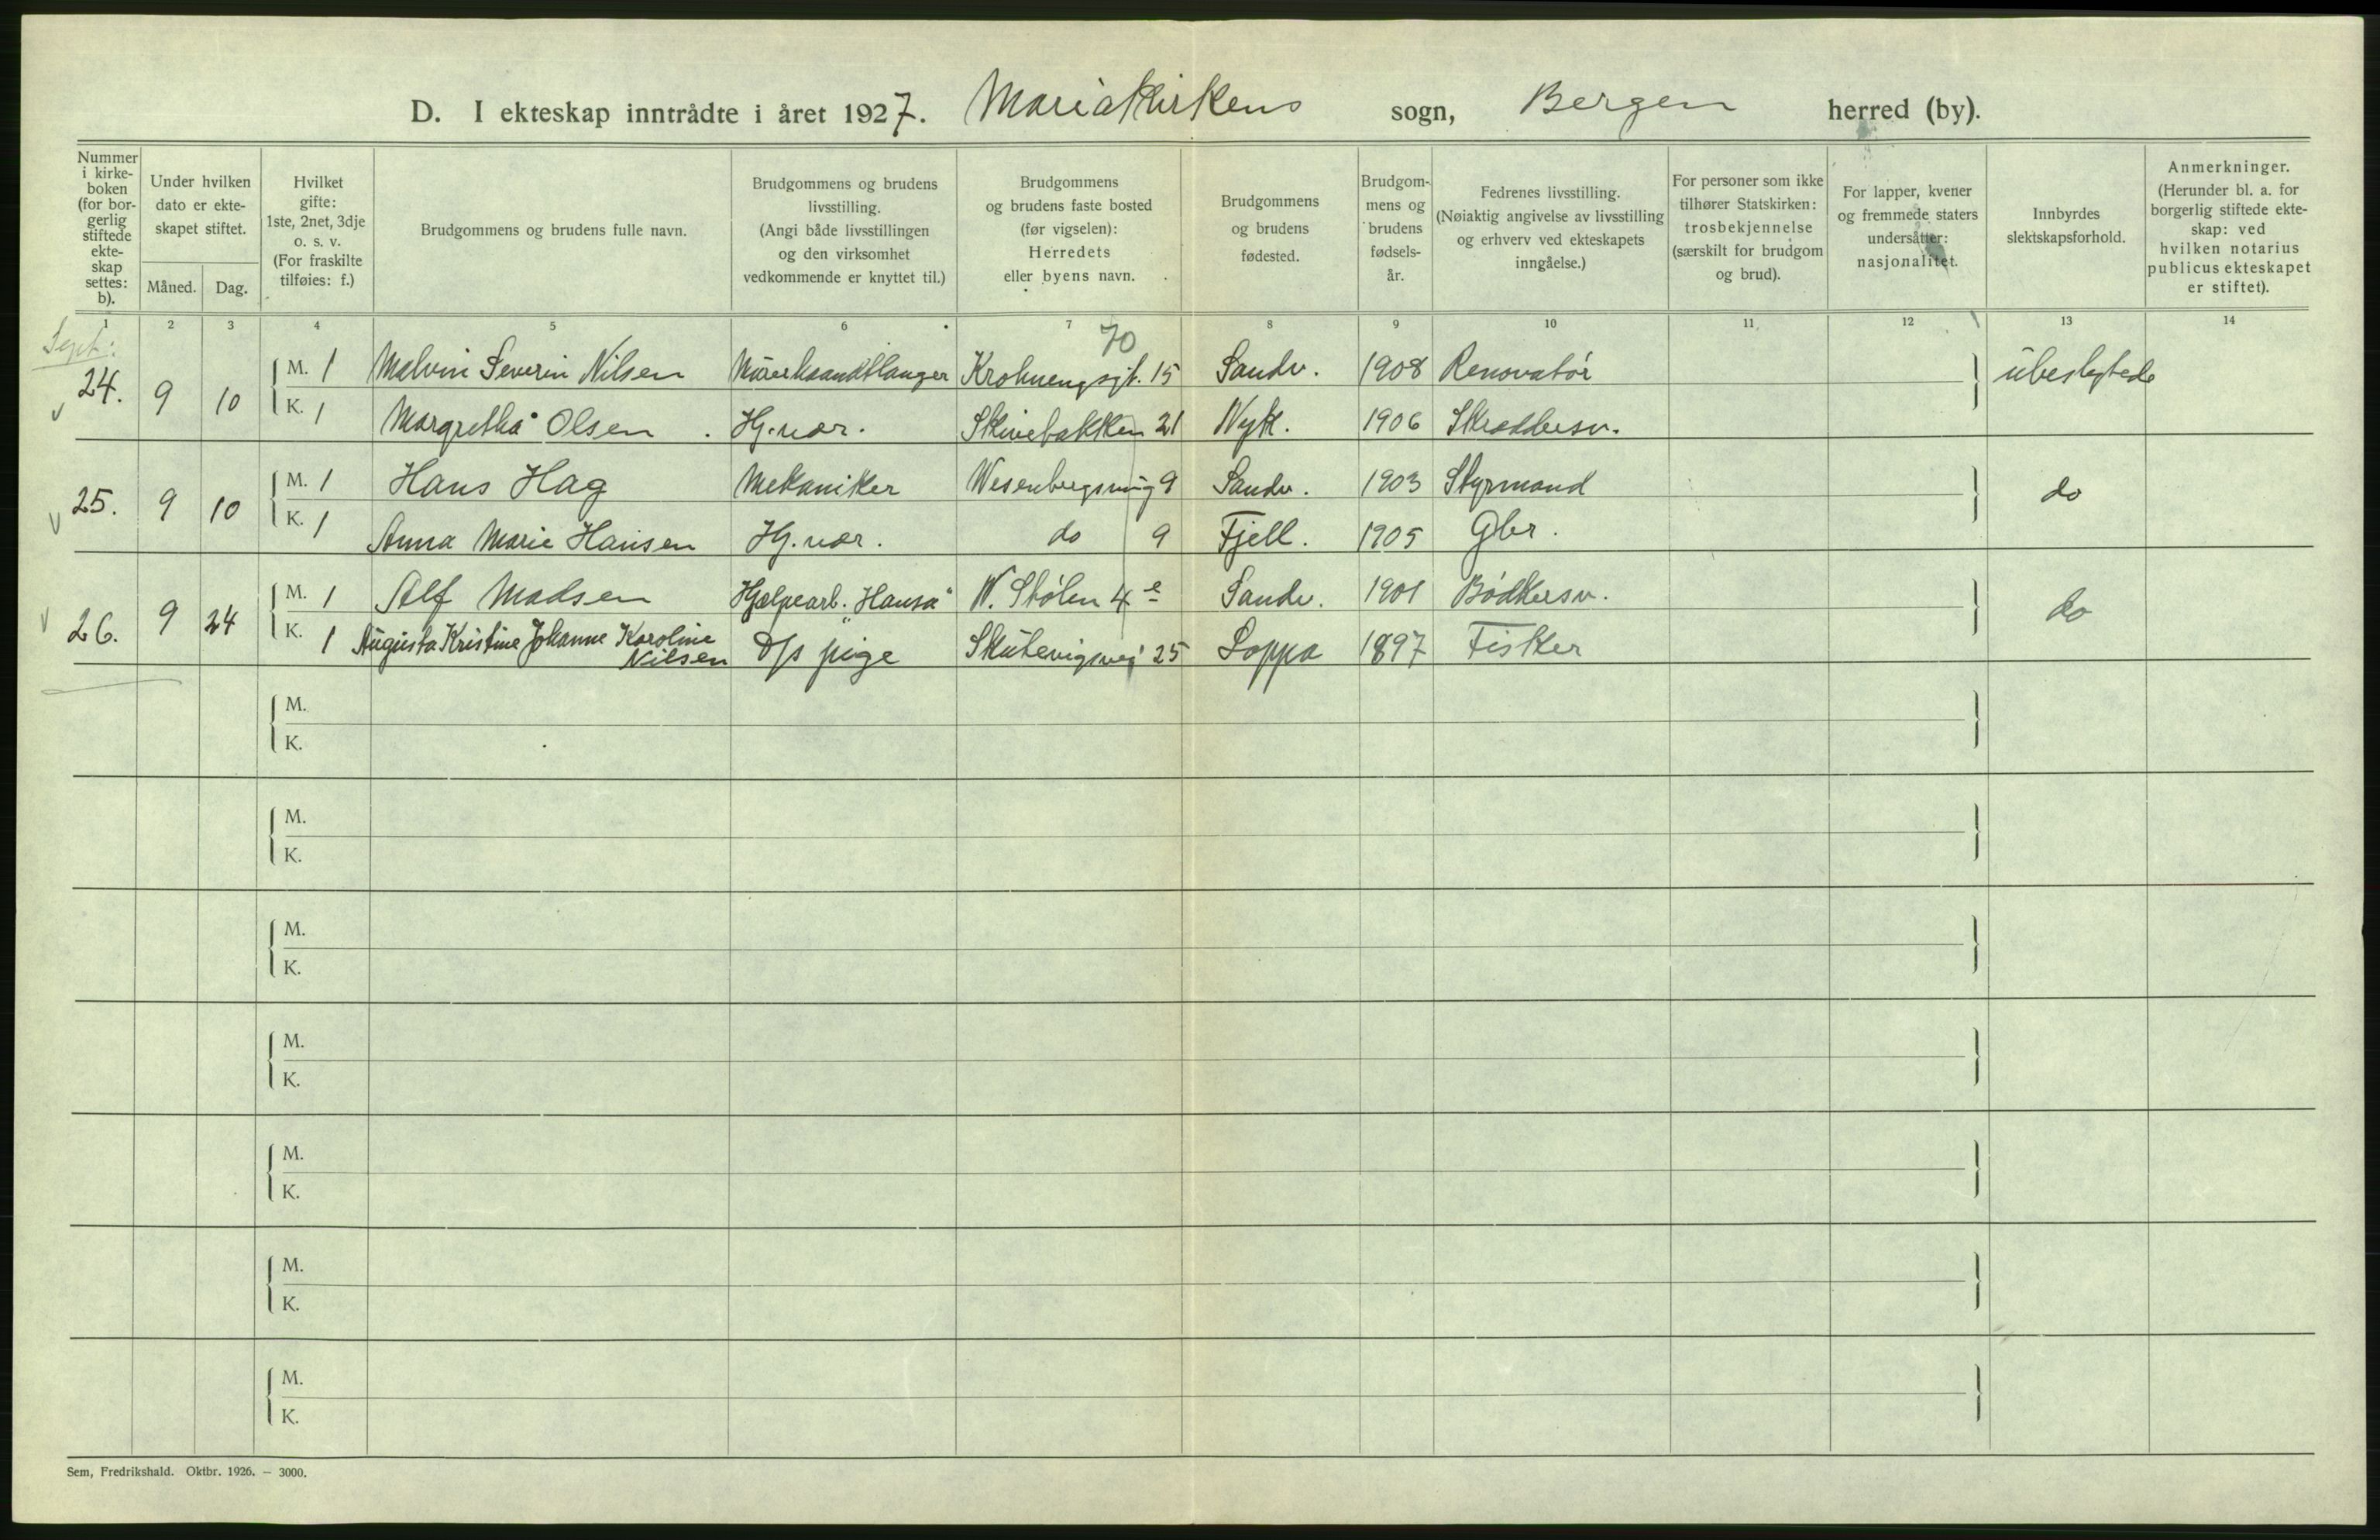 D. I ekteskap inntrådte i året 1927. Mariakirkens sogn, Bergen herred (by).
Nummer i kirke- boken (for bor- gerlig stiftede ekte- skap settes: b).
Under hvilken dato er ekte- skapet stiftet.
Måned. Dag.
Hvilket gifte: 1ste, 2net, 3dje o. s. v. (For fraskilte tilføies: f.)
Brudgommens og brudens fulle navn.
Brudgommens og brudens livsstilling. (Angi både livsstillingen og den virksomhet vedkommende er knyttet til.)
Brudgommens og brudens faste bosted (før vigselen): Herredets eller byens navn.
Brudgommens og brudens fødested.
Brudgom- mens og brudens fødsels- år.
Fedrenes livsstilling. (Nøiaktig angivelse av livsstilling og erhverv ved ekteskapets inngåelse.)
For personer som ikke tilhører Statskirken: trosbekjennelse (særskilt for brudgom og brud).
For lapper, kvener og fremmede staters undersåtter: nasjonalitet.
Innbyrdes slektskapsforhold.
Anmerkninger. (Herunder bl. a. for borgerlig stiftede ekte- skap: ved hvilken notarius publicus ekteskapet er stiftet).
1 2 3 4 5 6 7 8 9 10 11 12 13 14
Sept: 70
24. 9 10 M. 1 Malvin Severin Nilsen Murerhaandtlanger Krohnengsgt. 15 Sandv. 1908 Renovatör ubeslegtede
K. 1 Margretha Olsen Hj. vær. Skivebakken 21 Nyk. 1906 Skræddersv.
25. 9 10 M. 1 Hans Hag Mekaniker Wesenbergsmug 9 Sandv. 1903 Styrmand do
K. 1 Anna Marie Hansen Hj. vær. do 9 Fjell. 1905 Gbr.
26. 9 24 M. 1 Alf Madsen Hjælpearb. "Hansa" N. Stölen 4 e Sandv. 1901 Bödkersv. do
K. 1 Augusta Kristine Johanne Karoline
Nilsen D/s pige Skutevigsvej 25 Loppa 1897 Fisker
M.
K.
M.
K.
M.
K.
M.
K.
M.
K.
M.
K.
M.
K.
Sem, Fredrikshald. Oktbr. 1926. — 3000.